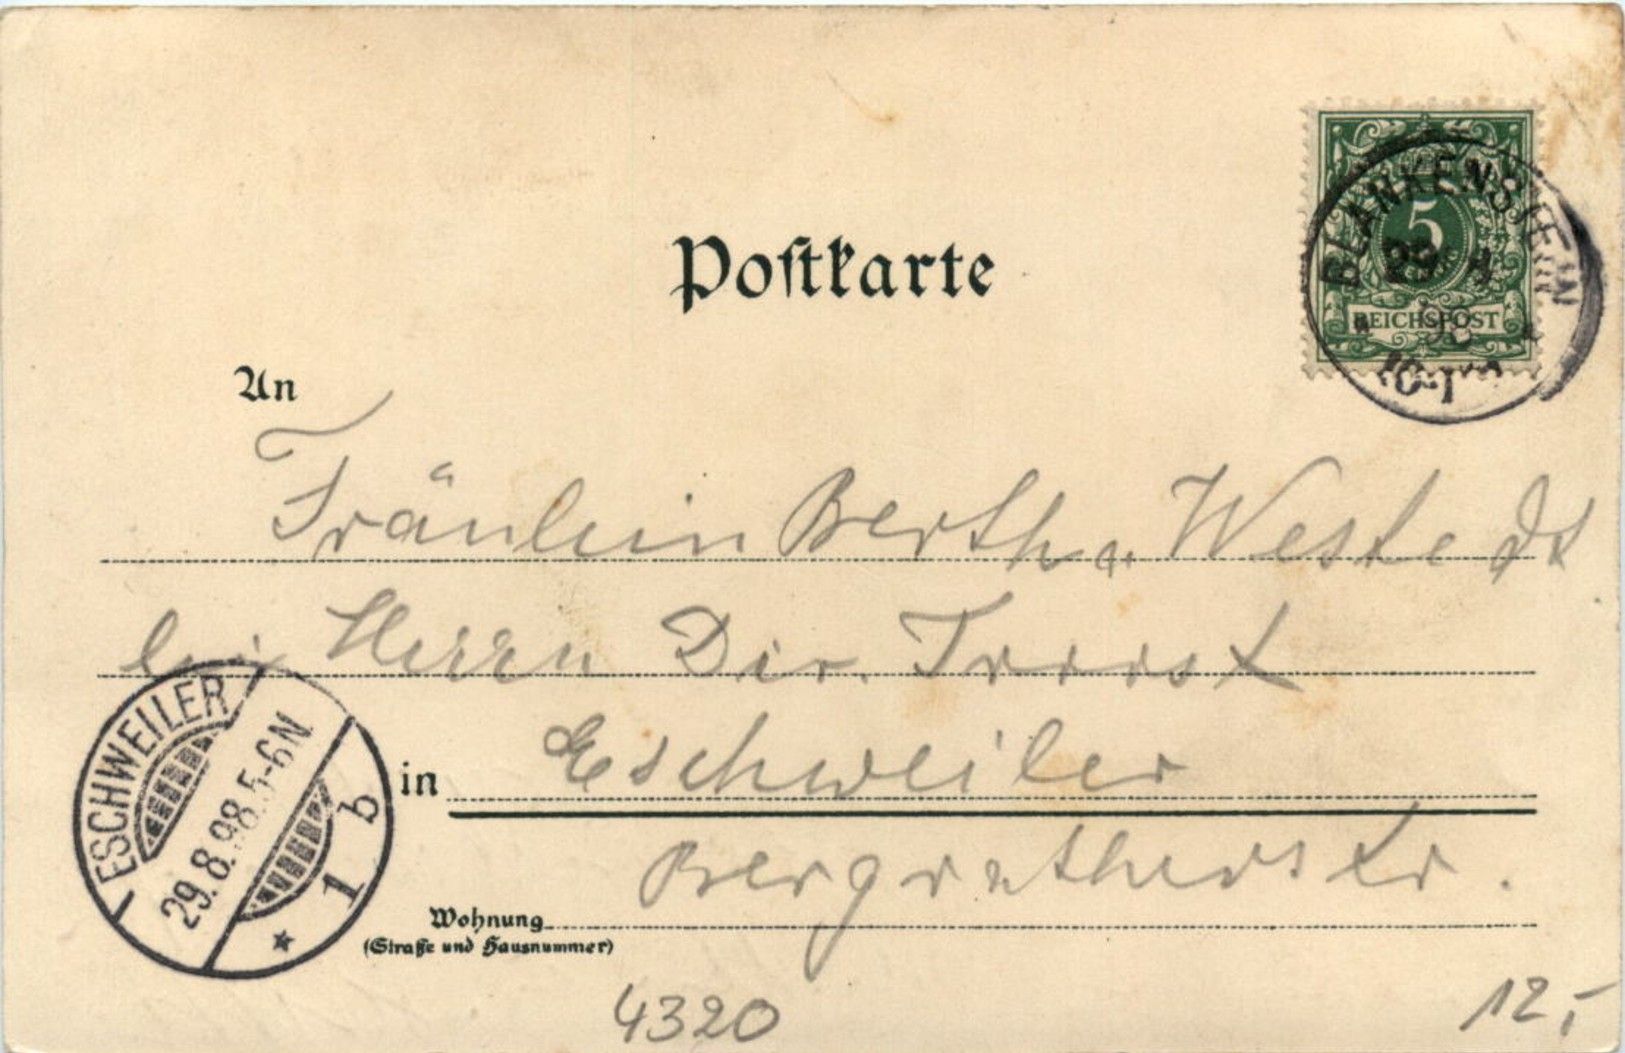 Postkarte
BLANKENSTEIN
5
29 8
98
REICHSPOST
10-1
An
Fräulein Bertha Westedt
bei Herrn Dir. Troost
ESCHWEILER
29.8.98.5-6N.
1 b
in Eschweiler
Bergratherstr.
Wohnung
(Straße und Hausnummer)
4320
12,-